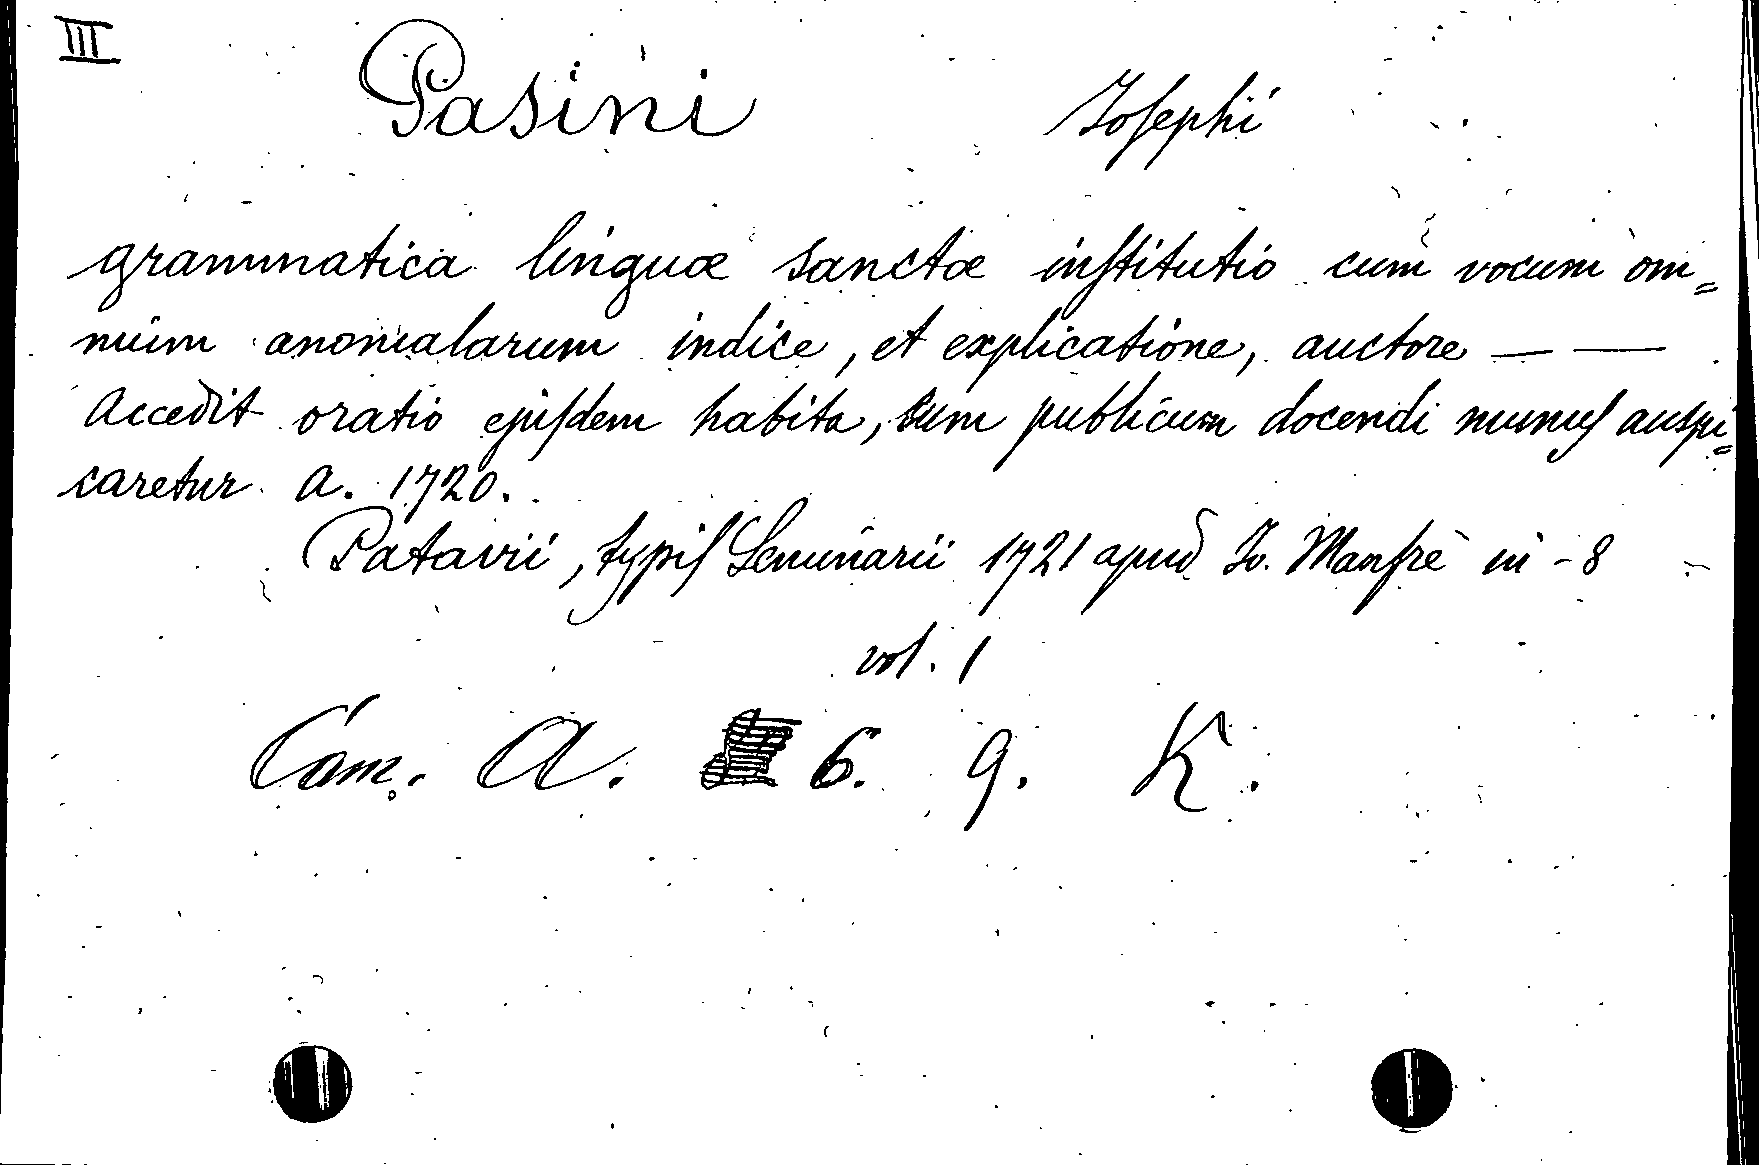 III
Pasini Josephi
grammatica linguæ sanctæ institutio cum vocum om=
nium anomalarum indice, et explicatione, auctore — —
Accedit oratio ejusdem habita, cum publicum docendi munus auspi=
caretur a. 1720.
Patavii, typis Seminarii 1721 apud Jo. Manfrè in -8
vol. 1
Cam. A. 6. 9. K.